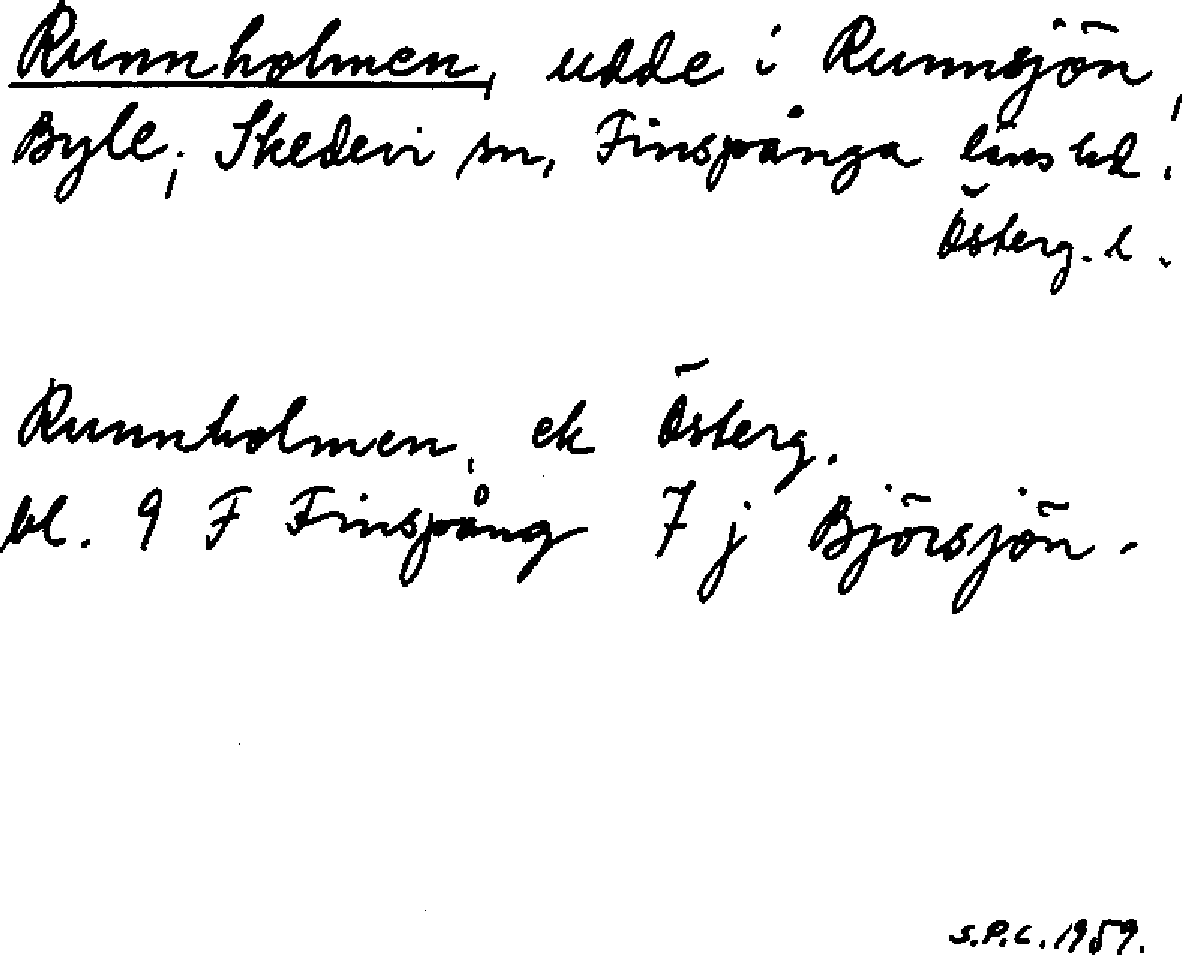 Runnholmen, udde i Runnsjön,
Byle; Skedevi sn, Finspånga läns hd.
Österg. l.
Runnholmen, ek Österg.
bl. 9 F Finspång 7 j Björsjön.
S.P.C. 1959.